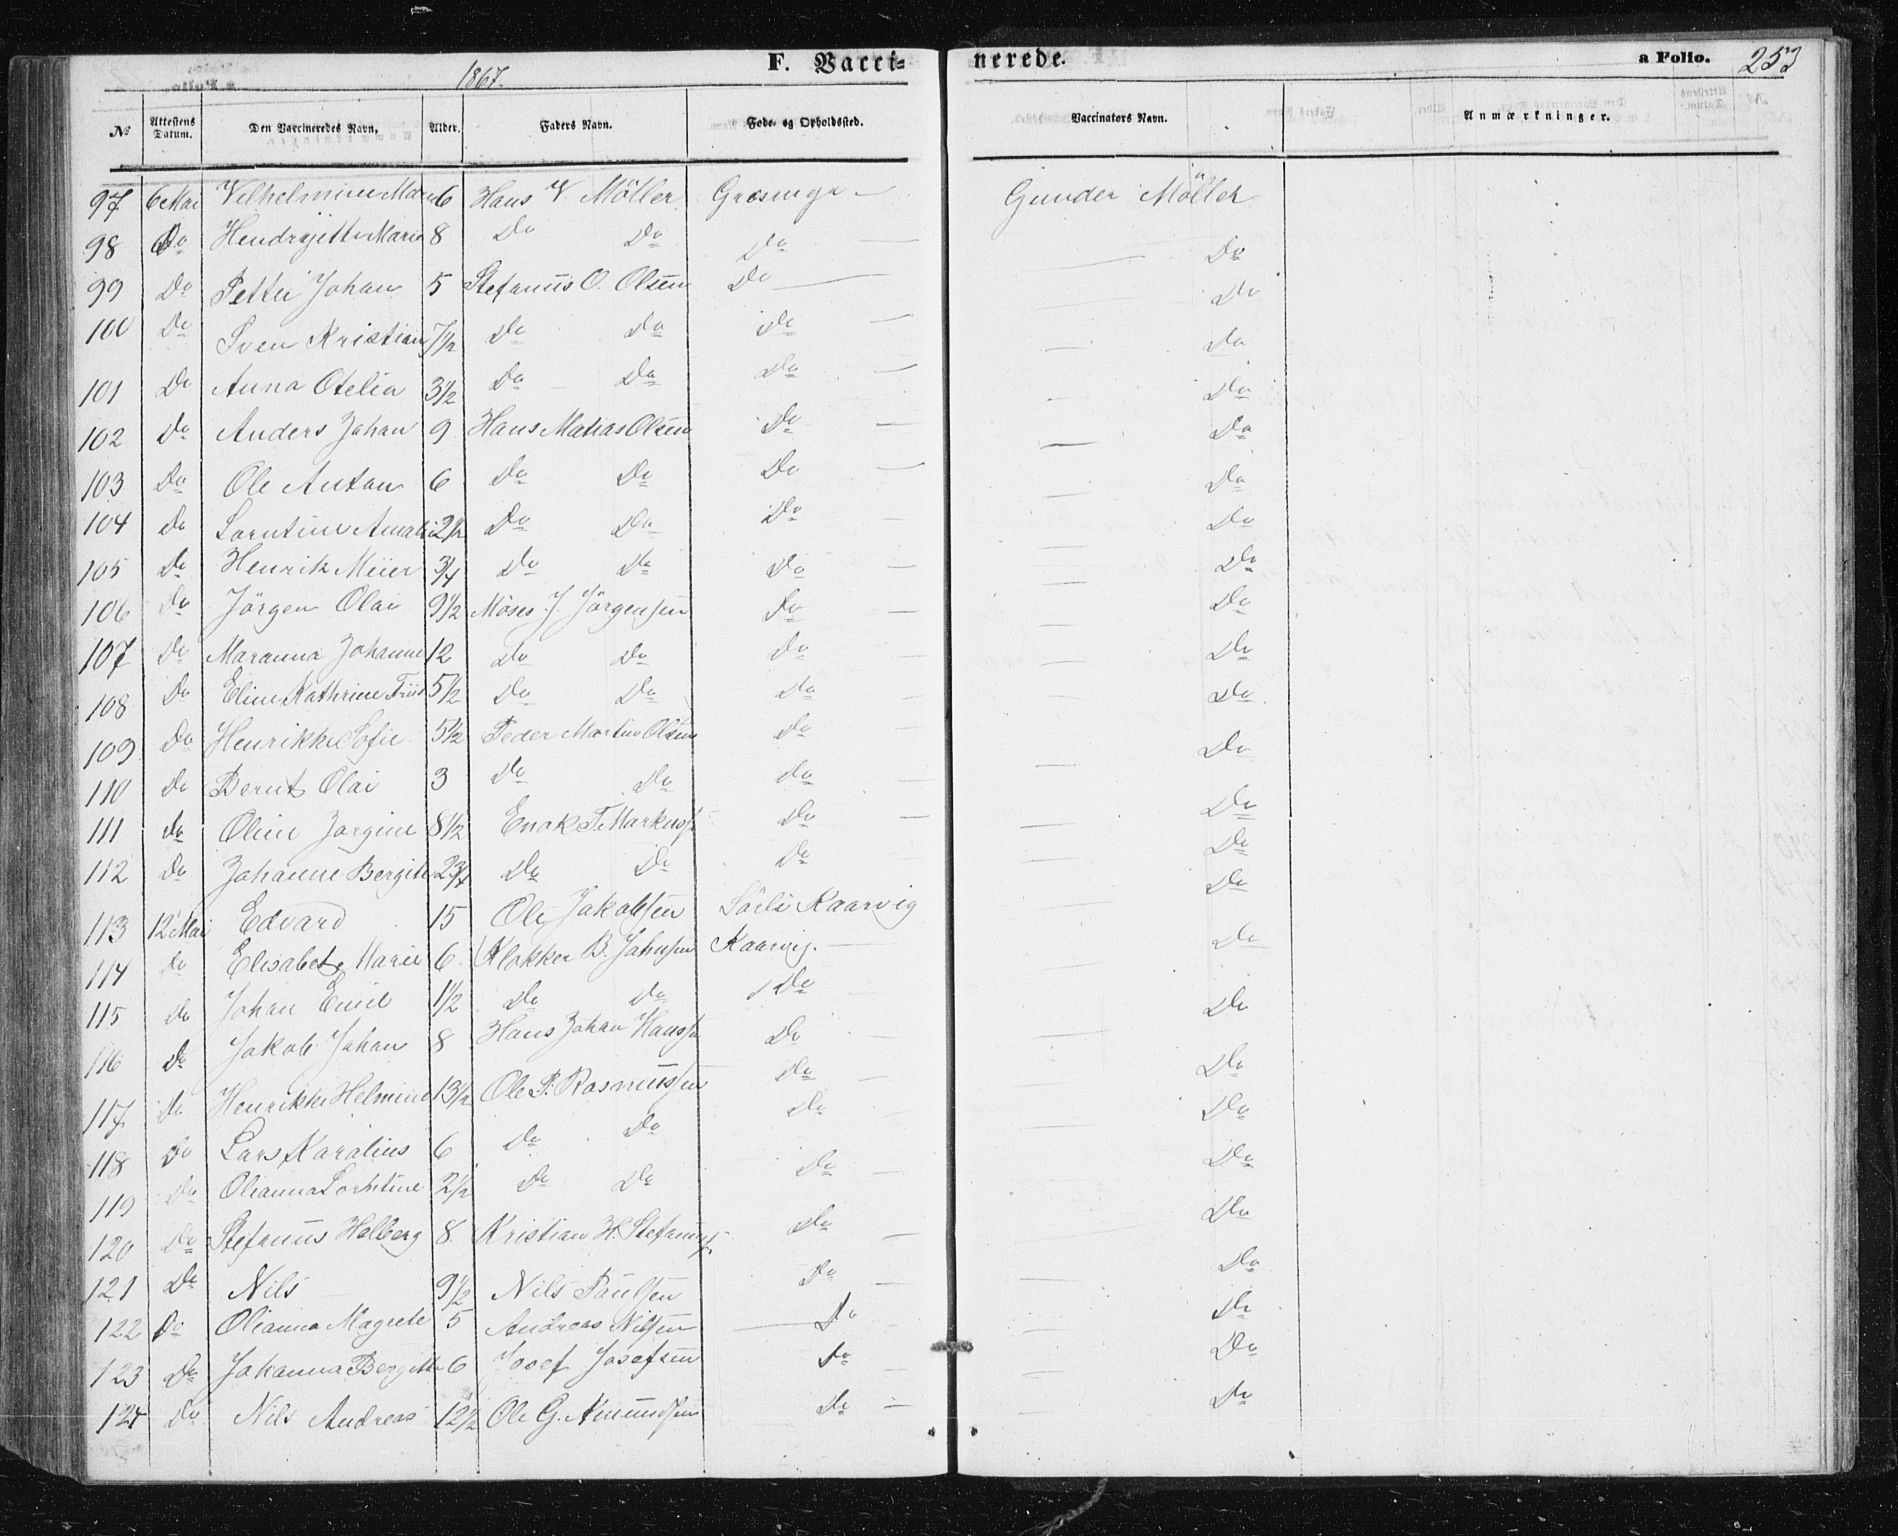 1867. F. Vacci- nerede. a Folio. 253
№ Attestens Datum. Den Vaccineredes Navn, Alder. Faders Navn. Føde- og Opholdssted. Vaccinators Navn. Anmærkninger.
97 6 Mai Vilhelmine 6 Hans V. Möller Gunder Möller
98 Do Marie 8 Do Do Do — Do
99 Do Petter Johan 5 Stefanus O. Olsen Do — Do
100 Do Sven Kristian 7½ Do Do Do — Do
101 Do Anna Otelia 3½ Do Do Do — Do
102 Do Anders Johan 9 Hans Matias Olsen Do — Do
103 Do Ole Antan 6 Do Do Do — Do
104 Do Lorntine Amali 2½ Do Do Do — Do
105 Do Henrik Meier ¾ Do Do Do — Do
106 Do Jörgen Olai 9½ Moses J. Jörgensen Do — Do
107 Do Maranna Johanne 12 Do Do Do — Do
108 Do Eline Kathrine Friis 5½ Do Do Do — Do
109 Do Henrikke Sofie 5½ Peder Martin Olsen Do — Do
110 Do Bernt Olai 3 Do Do Do — Do
111 Do Oline Jorgine 8½ Enok T. Markuss Do — Do
112 Do Johanne Bergite 2¾ Do Do Do Do
113 12 Mai Edvard 15 Ole Jakobsen Sörli Kaarvig Do
114 Do Elisabet Marie 6 Klokker B. Johnsen Kaarvig. — Do
115 Do Johan Emil 1½ Do Do Do — Do
116 Do Jakob Johan 8 Hans Johan Hanss Do — Do
117 Do Henrikke Helmine 13½ Ole P. Rasmussen Do — Do
118 Do Lars Karolius 6 Do Do Do — Do
119 Do Olianna Lorntine 2½ Do Do Do — Do
120 Do Stefanus Holberg 8 Kristian H. Stefanuss Do — Do
121 Do Nils 9½ Nils Paulsen Do — Do
122 Do Olianna Magrete 5 Andreas Nilsen Do — Do
123 Do Johanna Bergitte 6 Josef Josefsen Do — Do
124 Do Nils Andreas 12½ Ole G. Amundsen Do — Do